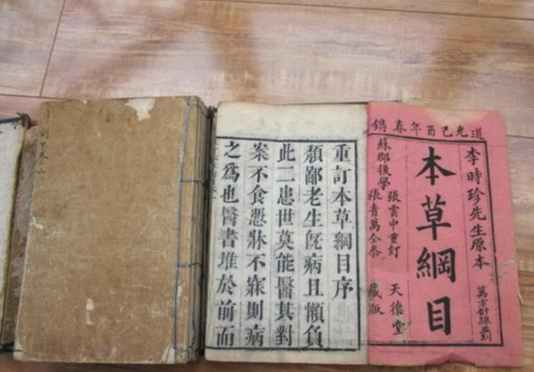 道光己酉年春鐫
李時珍先生原本
萬方針線並刻
本草綱目
蘇郡後學
張雲中重訂
張青萬仝參
天德堂
藏版
重訂本草綱目序
頹鄙老生旣病且懶負
此二患世莫能醫其對
案不食慿牀不寐則病
之爲也醫書堆於前而